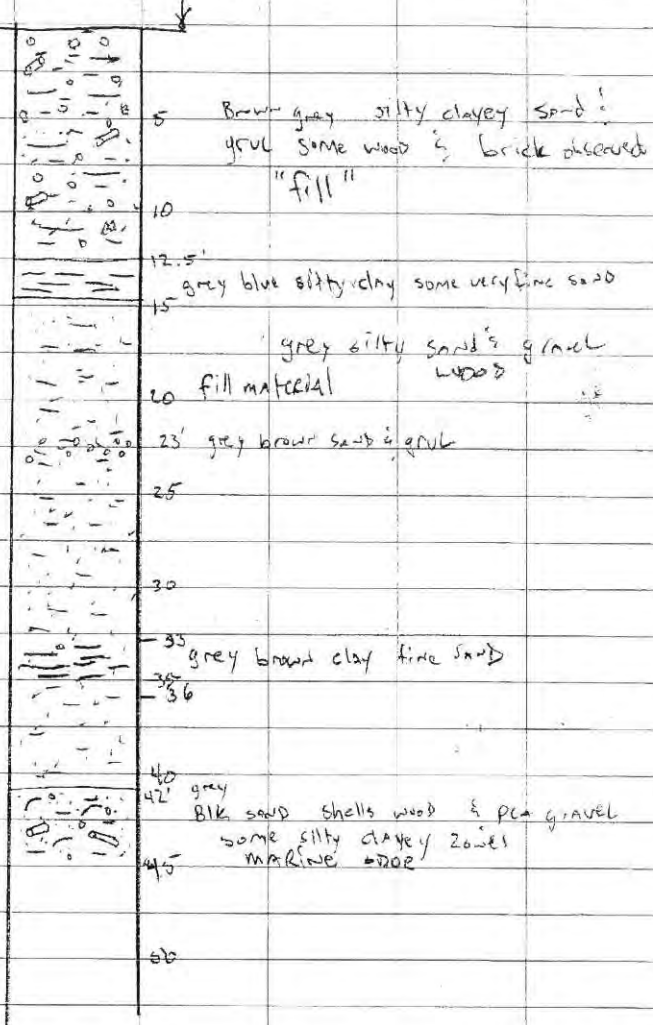 5 Brown grey silty clayey sand &
grvl some wood & brick observed
"fill"
10
12.5'
grey blue silty clay some very fine sand
15
grey silty sand & gravel
wood
fill material
20
23' grey brown sand & grvl
25
30
33
grey brown clay fine sand
35
36
40
42' grey
Blk sand shells wood & pea gravel
some silty clayey zones
45 MARINE odor
50